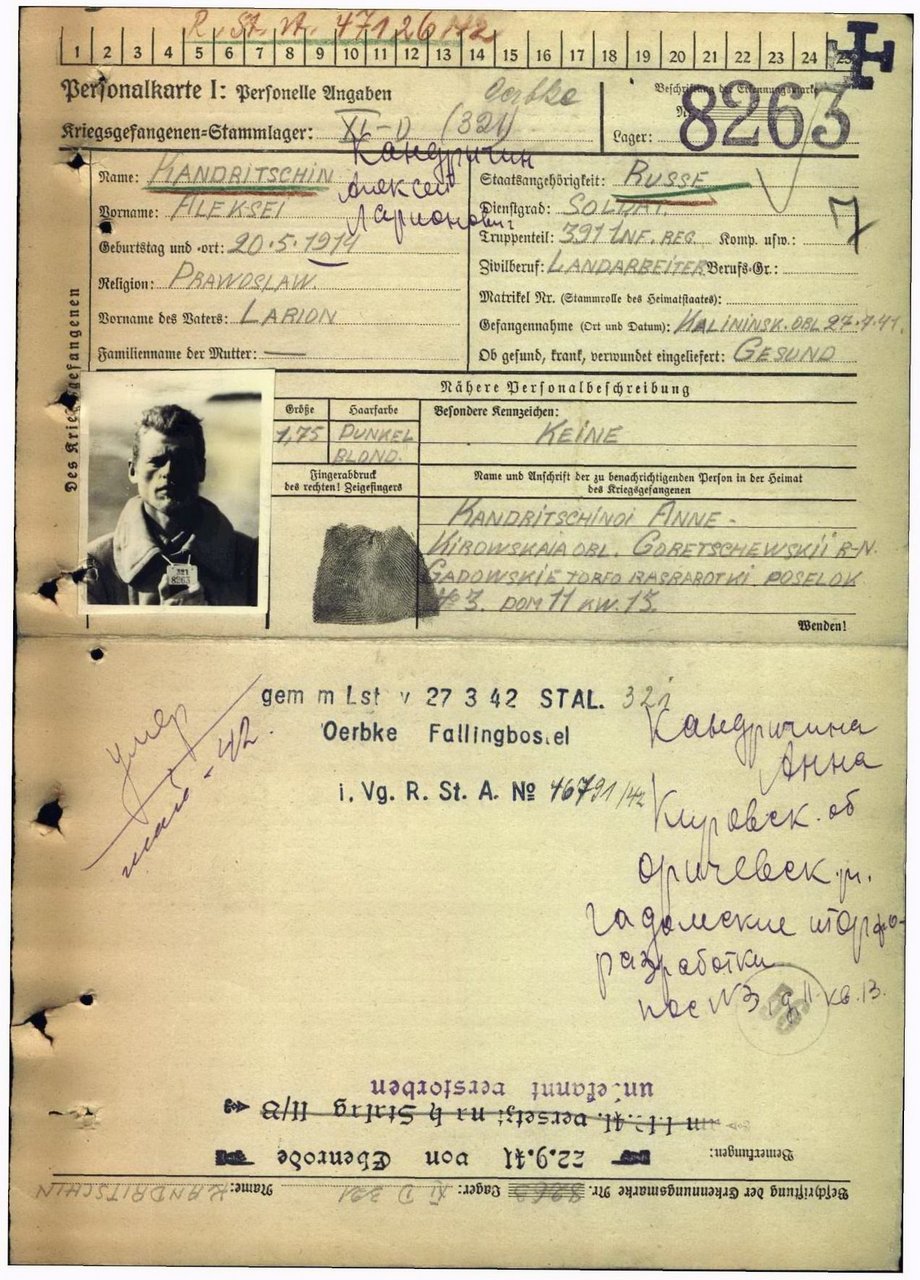 R. St. A. 47126/42
1 2 3 4 5 6 7 8 9 10 11 12 13 14 15 16 17 18 19 20 21 22 23 24 25
Personalkarte I: Personelle Angaben
Oerbke
Kriegsgefangenen-Stammlager: XI-D (321)
Beschriftung der Erkennungsmarke
Nr. 8263
Lager:
Des Kriegsgefangenen
Name: KANDRITSCHIN
Кандричин
Vorname: ALEKSEI
Алексей
Ларионович
Geburtstag und -ort: 20.5.1914
Religion: PRAWOSLAW.
Vorname des Vaters: LARION
Familienname der Mutter: —
Staatsangehörigkeit: RUSSE
Dienstgrad: SOLDAT.
Truppenteil: 391 INF. REG. Komp. usw.:
Zivilberuf: LANDARBEITER Berufs-Gr.:
Matrikel Nr. (Stammrolle des Heimatstaates):
Gefangennahme (Ort und Datum): KALININSK. OBL 27.7.41.
Ob gesund, krank, verwundet eingeliefert: GESUND
Nähere Personalbeschreibung
Größe
1,75
Haarfarbe
DUNKEL
BLOND.
Besondere Kennzeichen:
KEINE
Fingerabdruck
des rechten! Zeigefingers
Name und Anschrift der zu benachrichtigenden Person in der Heimat
des Kriegsgefangenen
KANDRITSCHINOI ANNE-
KIROWSKAIA OBL. GORETSCHEWSKII R-N.
GADOWSKIE TORFO RASRABOTKI POSELOK
№ 3. DOM 11 KW. 13.
321
8263
Wenden!
gem m Lst v 27 3 42 STAL. 321
Oerbke Fallingbostel
i. Vg. R. St. A. № 46791/42
умер
май - 42.
Кандричина
Анна
Кировск. об
оричевск. р.
гадомские торфо-
разработки
пос N3 д 11 кв. 13.
unbekannt verstorben
versetzt nach Stalag II/B
Bemerkungen: 22.9.41 von Ebenrode
Name: KANDRITSCHIN
Lager: XI D 321
Beschriftung der Erkennungsmarke Nr. 8263